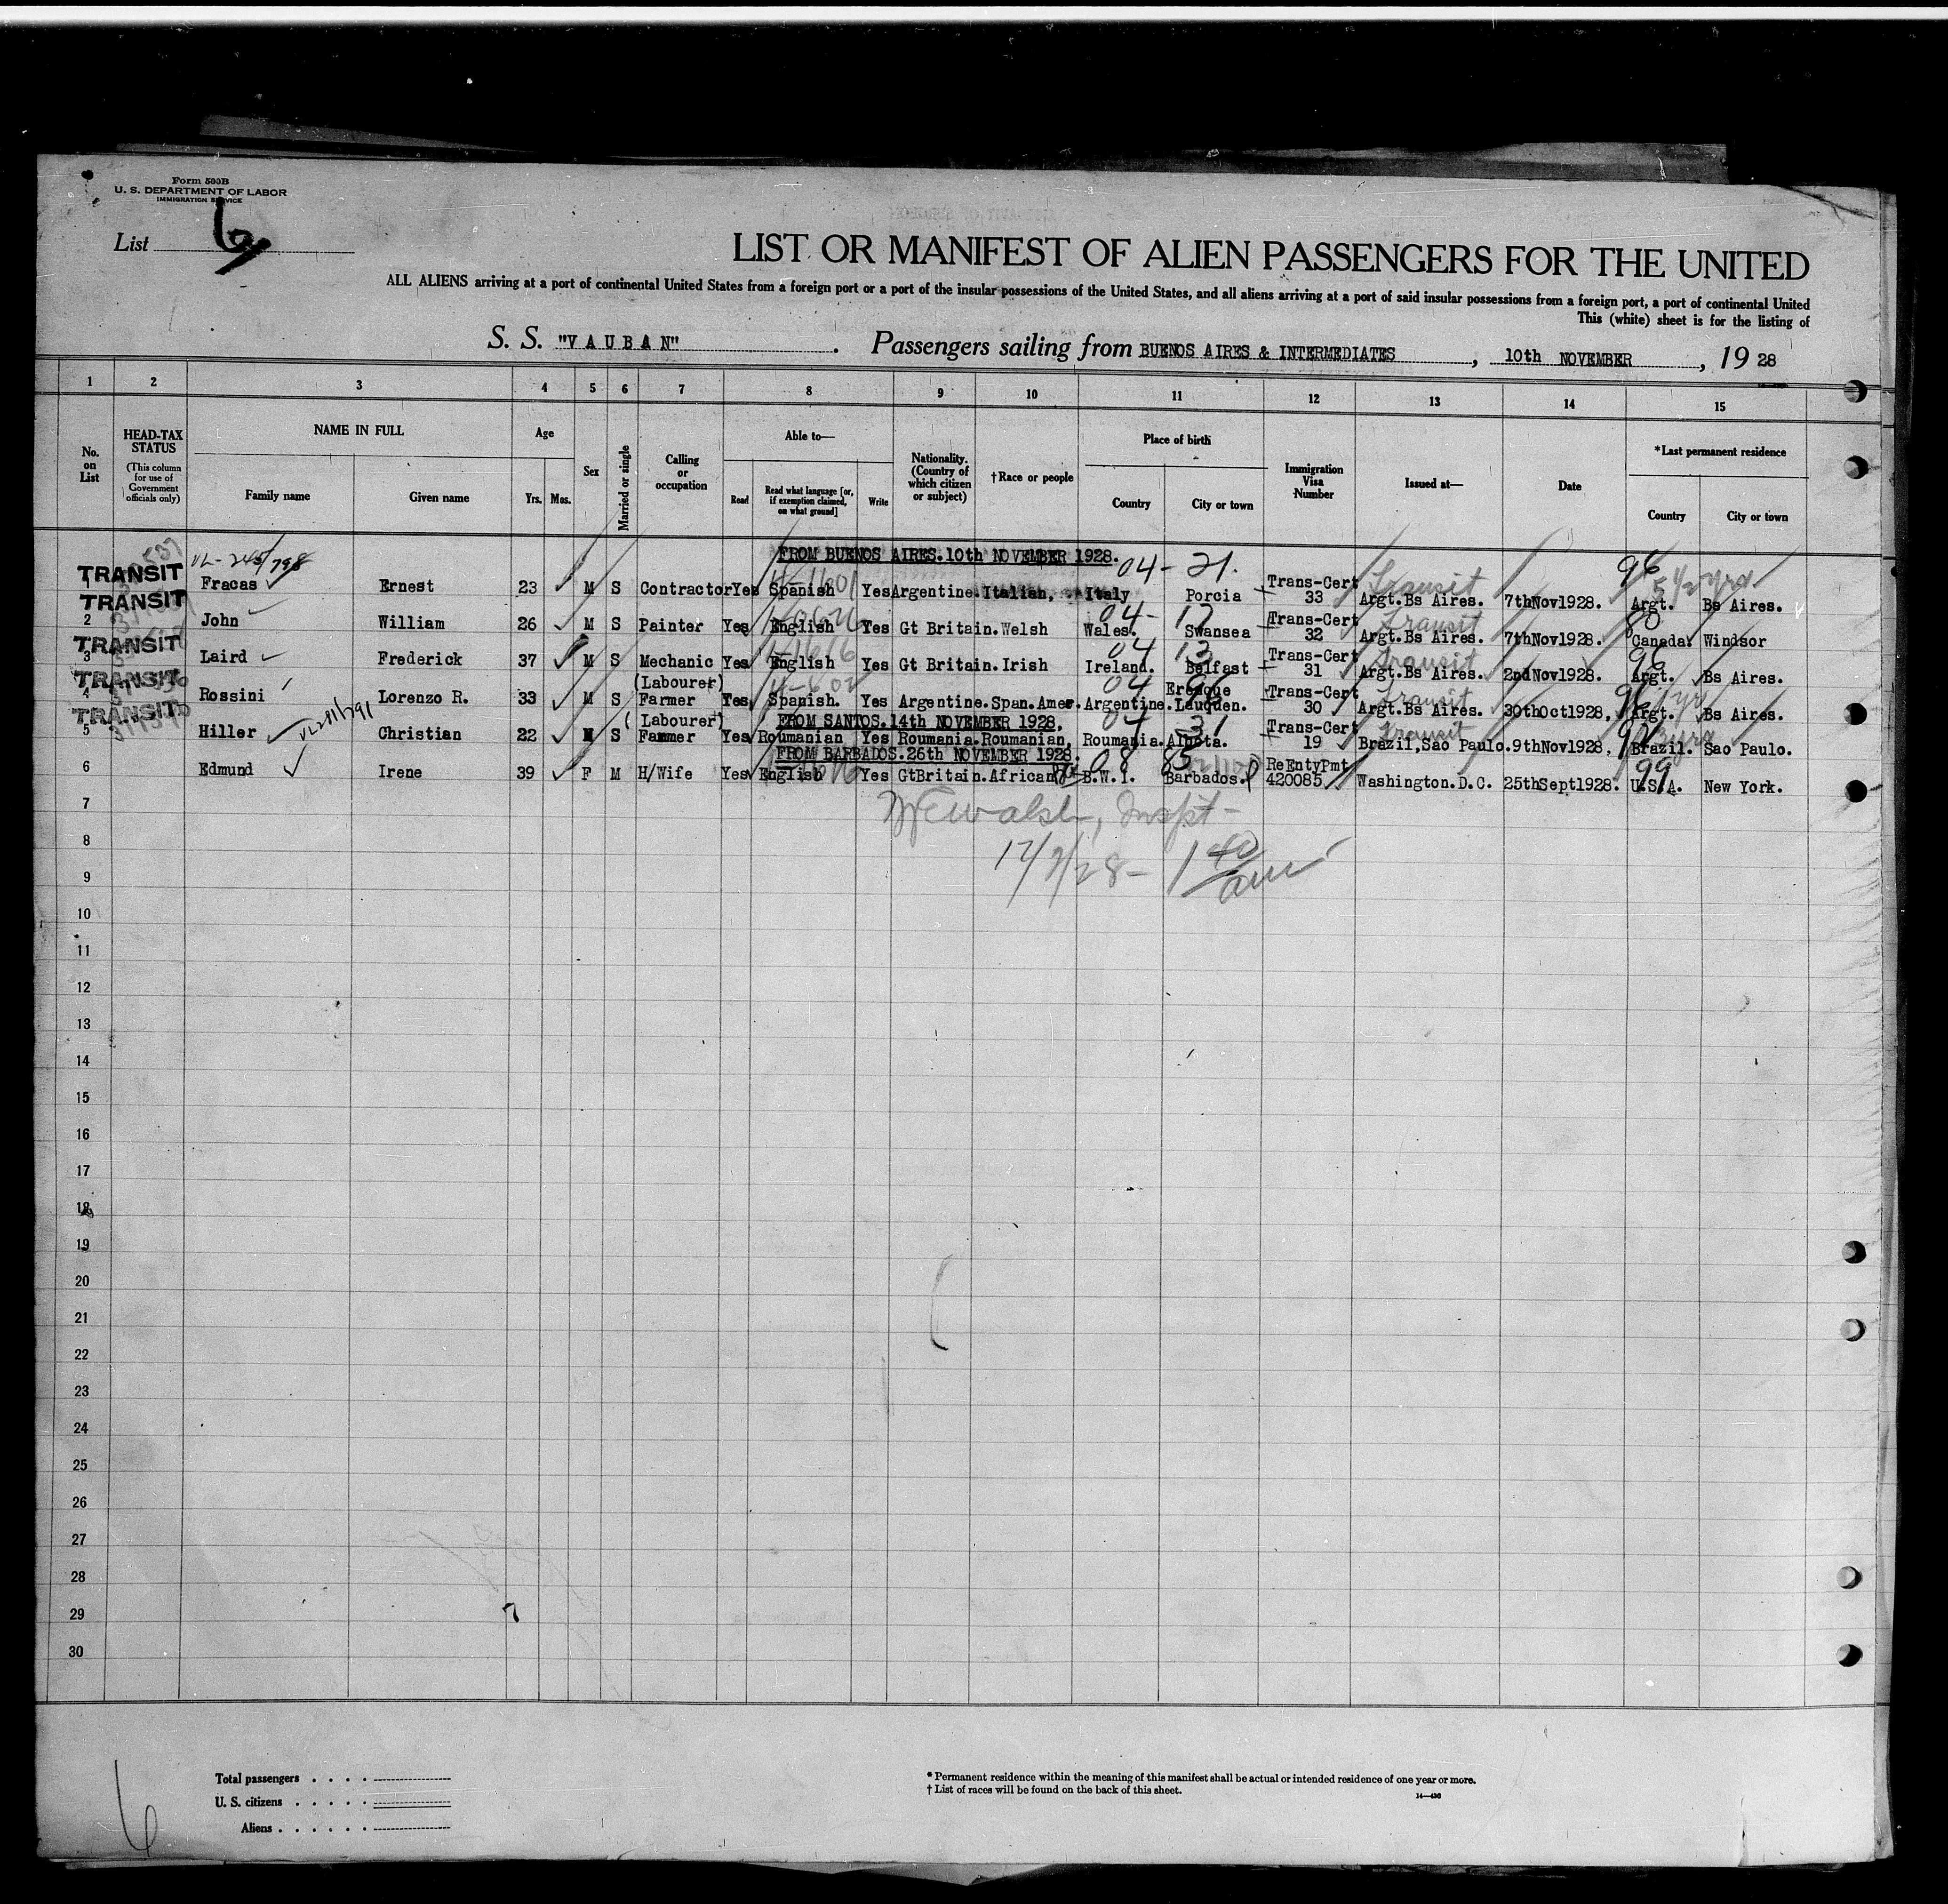 Form 500B
U. S. DEPARTMENT OF LABOR
IMMIGRATION SERVICE
List 6
LIST OR MANIFEST OF ALIEN PASSENGERS FOR THE UNITED
ALL ALIENS arriving at a port of continental United States from a foreign port or a port of the insular possessions of the United States, and all aliens arriving at a port of said insular possessions from a foreign port, a port of continental United
This (white) sheet is for the listing of
S. S. "VAUBAN". Passengers sailing from BUENOS AIRES & INTERMEDIATES, 10th NOVEMBER, 19 28
1 2 3 4 5 6 7 8 9 10 11 12 13 14 15
No. on List
HEAD-TAX STATUS
(This column for use of Government officials only)
NAME IN FULL
Family name Given name
Age
Yrs. Mos.
Sex
Married or single
Calling or occupation
Able to—
Read
Read what language [or, if exemption claimed, on what ground]
Write
Nationality. (Country of which citizen or subject)
†Race or people
Place of birth
Country City or town
Immigration Visa Number
Issued at—
Date
*Last permanent residence
Country City or town
FROM BUENOS AIRES.10th NOVEMBER 1928.
04 - 21. 96 5 1/2 yrs
TRANSIT 1 Fracas Ernest 23 M S Contractor Yes Spanish Yes Argentine. Italian, Italy Porcia Trans-Cert 33 Transit Argt.Bs Aires. 7thNov1928. Argt. Bs Aires.
04 - 17 80
TRANSIT 2 John William 26 M S Painter Yes English Yes Gt Britain. Welsh Wales. Swansea Trans-Cert 32 Transit Argt.Bs Aires. 7thNov1928. Canada. Windsor
04 13 96
TRANSIT 3 Laird Frederick 37 M S Mechanic Yes English Yes Gt Britain. Irish Ireland. Belfast Trans-Cert 31 Transit Argt.Bs Aires. 2ndNov1928. Argt. Bs Aires.
04 96 96
TRANSIT 4 Rossini Lorenzo R. 33 M S (Labourer) Farmer Yes Spanish. Yes Argentine. Span.Amer. Argentine. Lauquen. Trans-Cert 30 Transit Argt.Bs Aires. 30thOct1928, Argt. Bs Aires.
FROM SANTOS.14th NOVEMBER 1928.
04 31
TRANSIT 5 Hiller Christian 22 M S (Labourer) Farmer Yes Roumanian Yes Roumania. Roumanian, Roumania. Trans-Cert 19 Transit Brazil,Sao Paulo. 9thNov1928, Brazil. Sao Paulo.
FROM BARBADOS.26th NOVEMBER 1928.
08 85 99
6 Edmund Irene 39 F M H/Wife Yes English Yes GtBritain. African B.W.I. Barbados. ReEntyPmt 420085 Washington.D.C. 25thSept1928. U.S.A. New York.
7
8
9
10
11
12
13
14
15
16
17
18
19
20
21
22
23
24
25
26
27
28
29
30
Total passengers . . . .
U. S. citizens . . . . .
Aliens . . . . . .
* Permanent residence within the meaning of this manifest shall be actual or intended residence of one year or more.
† List of races will be found on the back of this sheet.
14—430
6